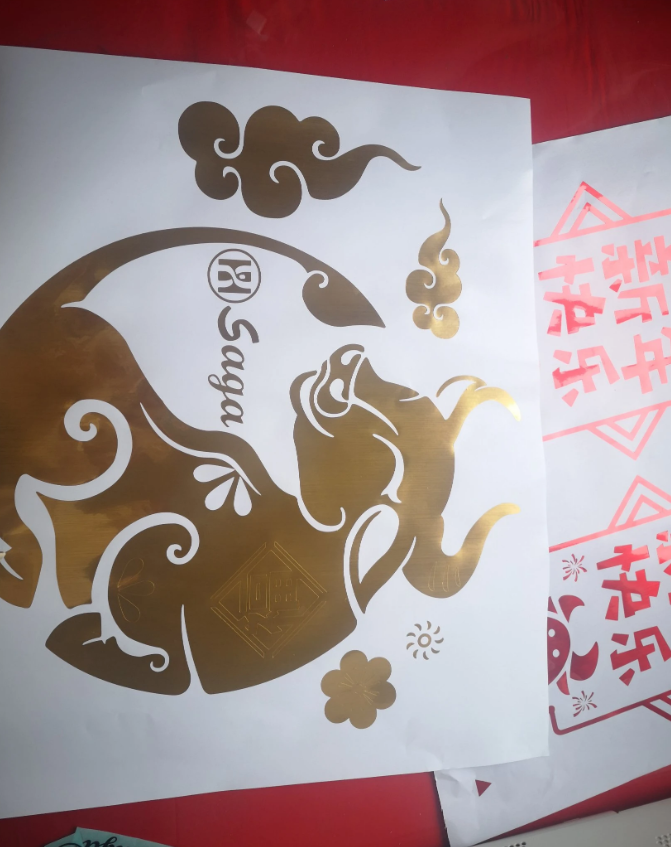 Saga
新年
快乐
快乐